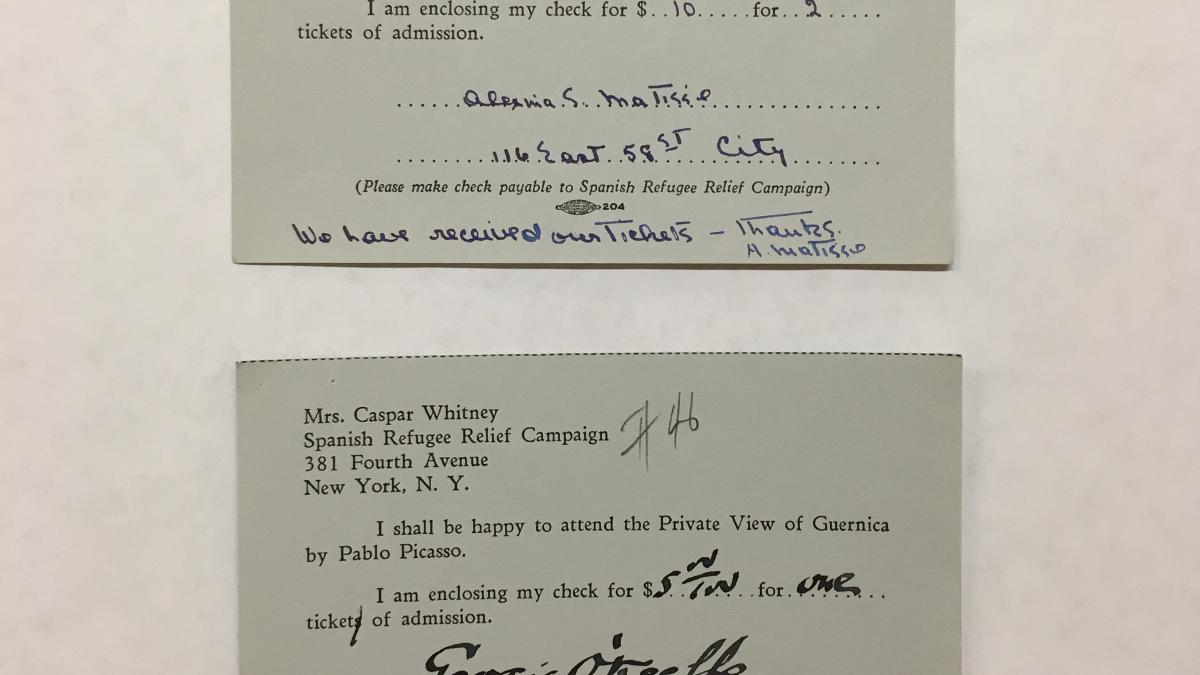 I am enclosing my check for $..10.....for..2.....
tickets of admission.
......Alexina S. Matisse...............
.........116 East 58 ST City.........
(Please make check payable to Spanish Refugee Relief Campaign)
204
We have received our Tickets – Thanks.
A. Matisse
Mrs. Caspar Whitney
Spanish Refugee Relief Campaign
# 46
381 Fourth Avenue
New York, N. Y.
I shall be happy to attend the Private View of Guernica
by Pablo Picasso.
I am enclosing my check for $5 no/100..for.one....
tickets of admission.
Georgia O'Keeffe